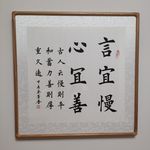 言宜慢
心宜善
古人云慢則平
和蓄力善則厚
重久遠